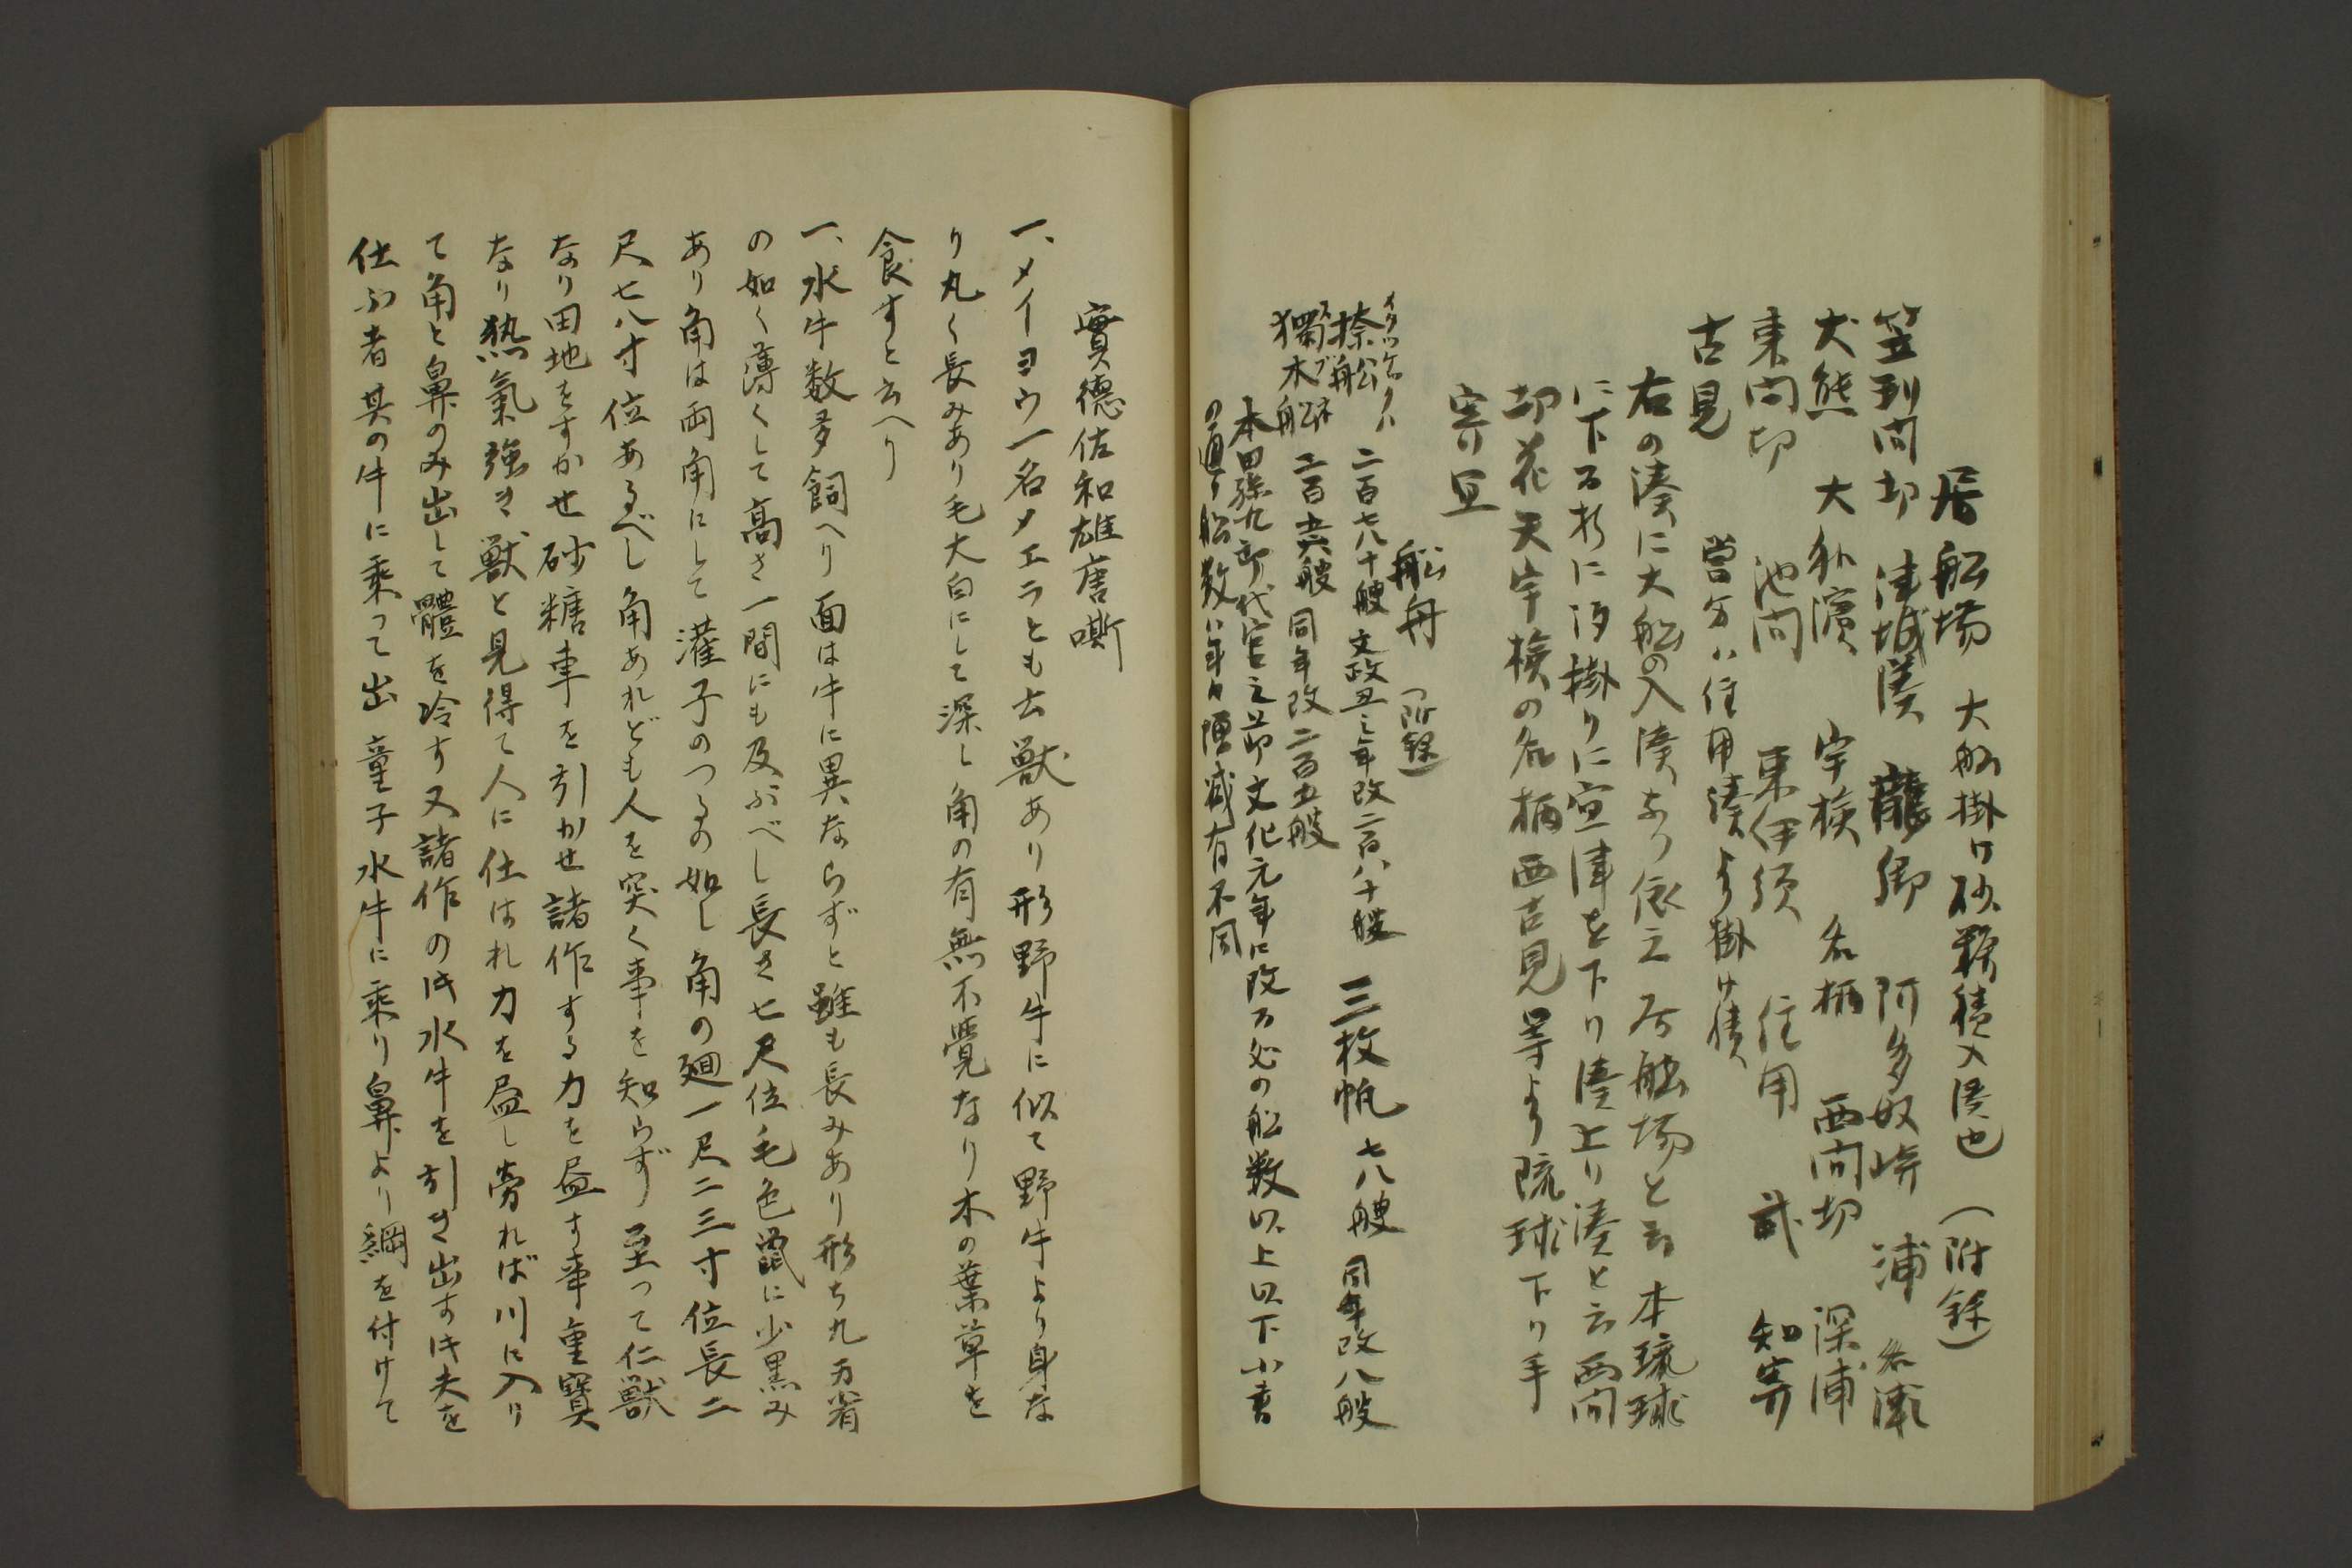 居船場 大船掛け砂糖積入湊也 (附録)
笠利間切 津城湊 龍郷 阿多奴崎 浦 名瀬
大熊 大和濱 宇検 名柄 西間切 深浦
東間切 池間 東伊須 住用 試 知寄
古見 當分ハ住用湊より掛け積
右の湊に大船の入湊あり依之居船場と云本琉球
に下る折に汐掛りに宜津を下り湊上り湊と云西間
切花天宇検の名柄西古見等より琉球下り手
寄り宜
船舟 (附録)
イタツケクハ
捺舩 二百七八十艘 文政丑之年改二百八十艘 三枚帆 七八艘 同年改八艘
スブネ
獨木船 二百六艘 同年改二百五艘
本田孫九郎代官之節文化元年に改る処の船数以上以下小書
の通り船数ハ年々増減有不同
實德佐和雄唐噺
一、メイヨウ一名メエラとも云獣あり形野牛に似て野牛より身な
り丸く長みあり毛大白にして深し角の有無不覺なり木の葉草を
食すと云へり
一、水牛数多飼へり面は牛に異ならずと雖も長みあり形ち丸刃背
の如く薄くして高さ一間にも及ぶべし長さ七尺位毛色鼠に少黒み
あり角は両角にして灌子のつるの如し角の廻一尺二三寸位長二
尺七八寸位あるべし角あれども人を突く事を知らず至って仁獣
なり田地をすかせ砂糖車を引かせ諸作する力を盡す事重寳
なり熱氣強き獣と見得て人に仕はれ力を盡し労れば川に入り
て角と鼻のみ出して體を冷す又諸作の時水牛を引き出す時夫を
仕ふ者其の牛に乗って出童子水牛に乗り鼻より綱を付けて